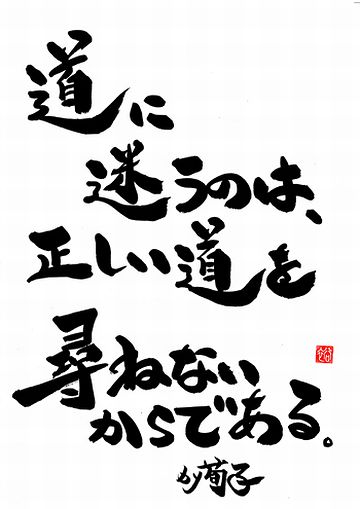 道に
迷うのは、
正しい道を
尋ねない
からである。
by 荀子